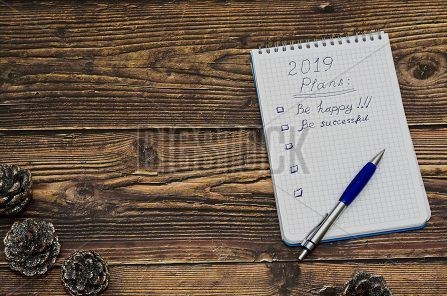 2019
Plans:
Be happy!!!
Be successful
BIGSTOCK